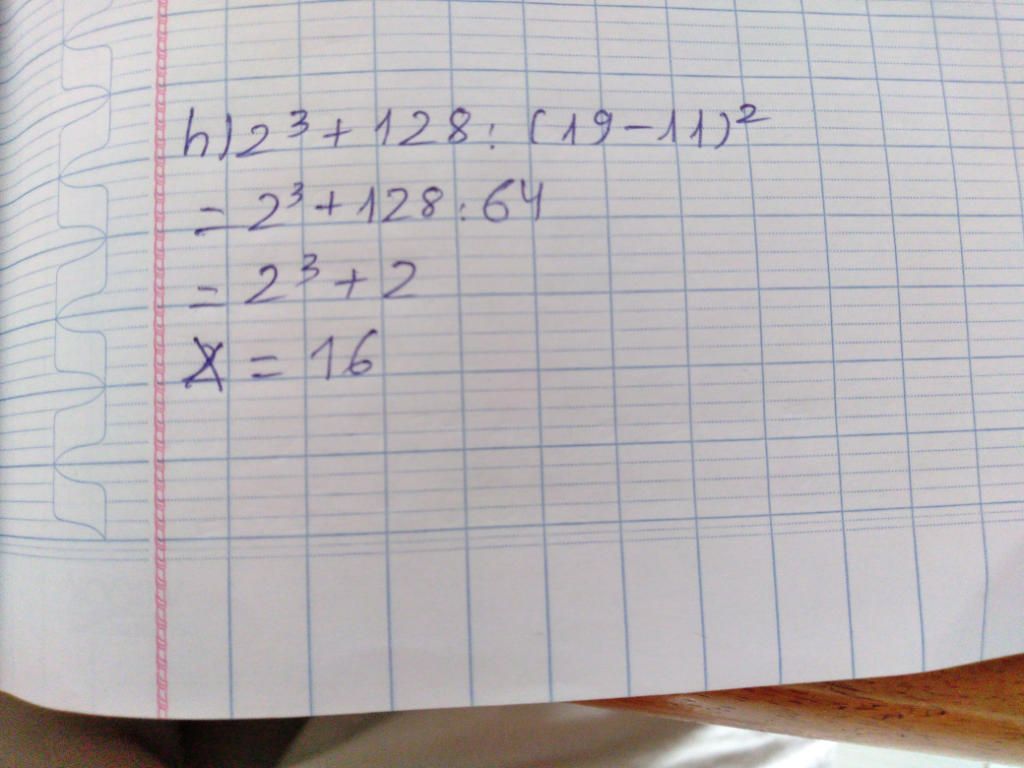 h) 2³ + 128 : (19 - 11)²
= 2³ + 128 : 64
= 2³ + 2
= 16